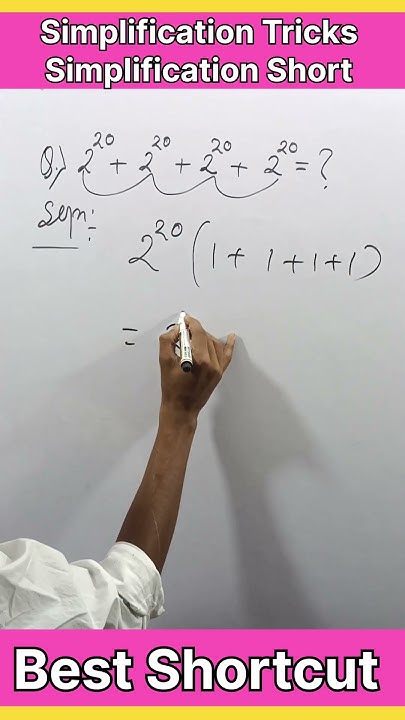 Simplification Tricks
Simplification Short
Q.) 2^20 + 2^20 + 2^20 + 2^20 = ?
Soln:
2^20 (1 + 1 + 1 + 1)
=
Best Shortcut